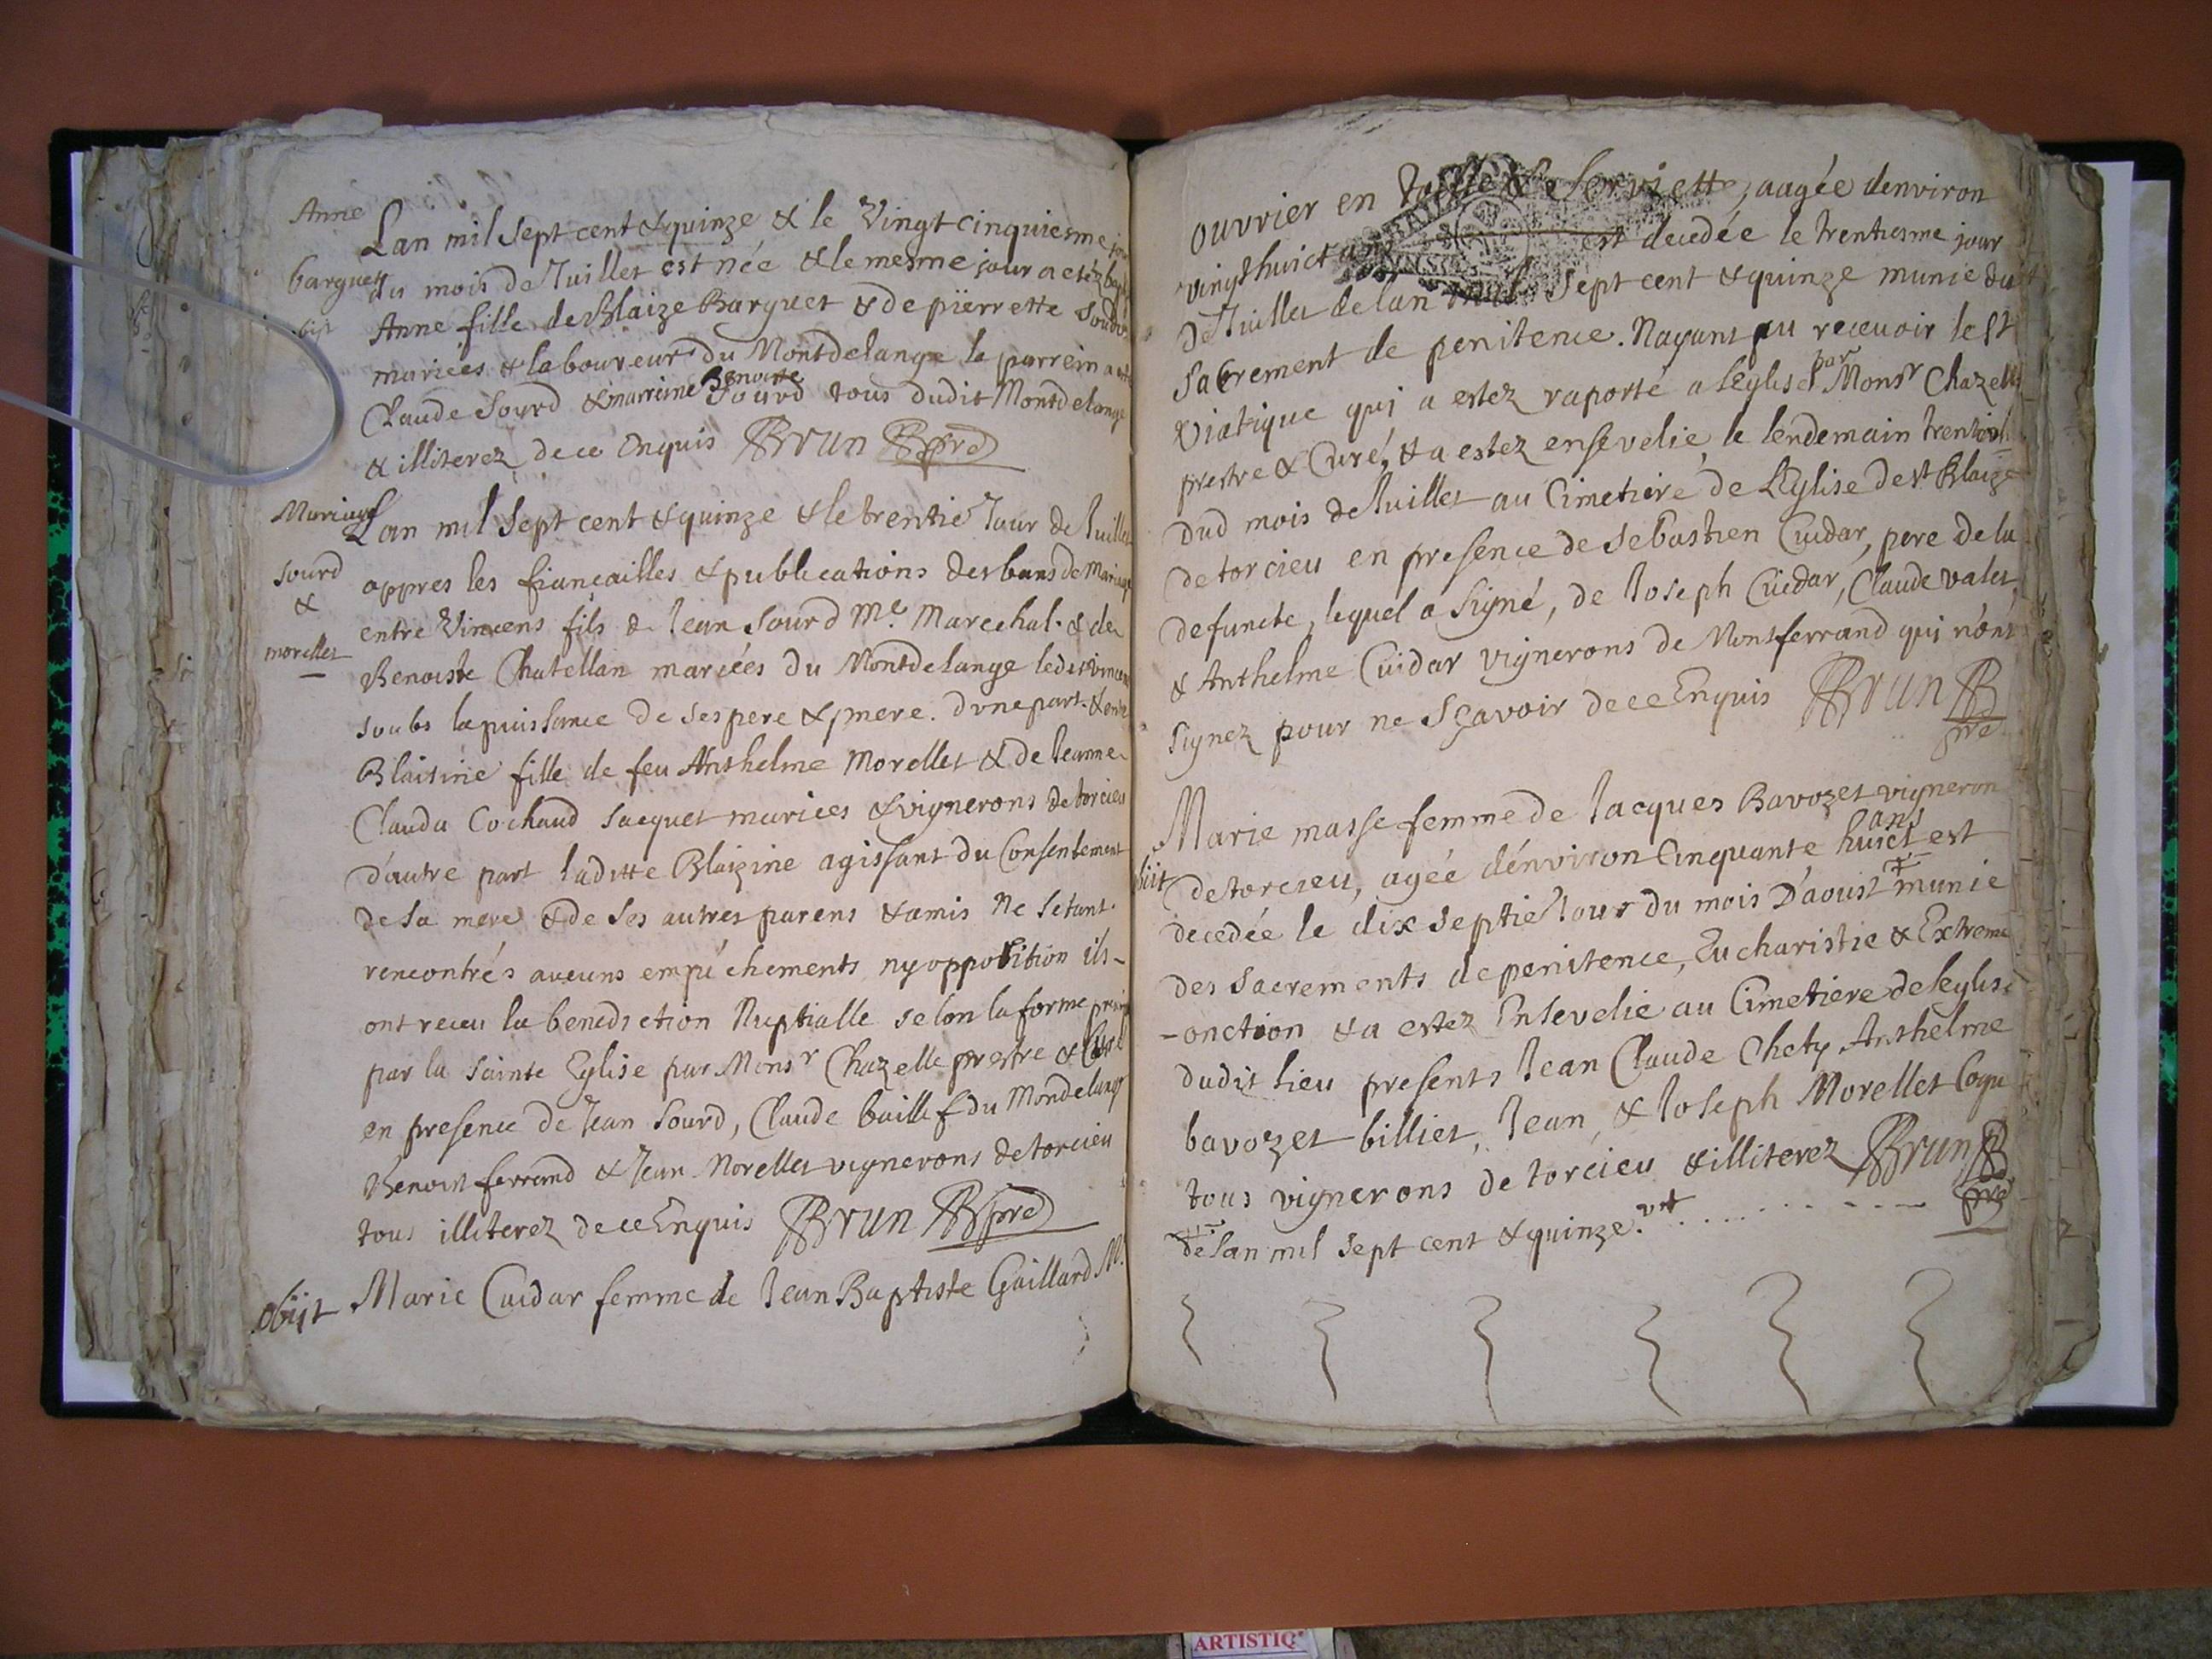 Anne
barguet
bapt
Lan mil sept cent & quinze & le Vingt cinquiesme jour
du mois de Juillet est née & le mesme jour a estéz bapt
Anne fille de Blaize Barguet & de pierrette Sourd
mariées & laboureur du Montdelange le parrein a esté
Claude Sourd & marreine Benoite Sourd tous dudit Montdelange
& illiterez de ce Enquis Brun pre
Mariage
Sourd
&
morellet
Lan mil sept cent & quinze & le trentie Jour de Juillet
appres les fiançailles & publications des bans de Mariage
entre Vincens fils de Jean Sourd Me. Marechal. & de
Benoiste Chatellan mariées du Montdelange ledit Vincens
soubs la puissance de ses pere & mere. dvne part. & entre
Blaisine fille de feu Anthelme Morellet & de Jeanne
Clauda Cochaud Jacquet mariees & vignerons de torcieu
d'autre part laditte Blaizine agissant du Consentement
de sa mere & de ses autres parens & amis Ne setant
rencontrés aucuns empéchements ny opposition ils
ont receu la benediction Nuptialle selon la forme
par la Sainte Eglise par Monsr Chazelle prestre & Curé
en presence de Jean Sourd, Claude baillif du Mondelange
Benoist ferrand & Jean Morellet vignerons de torcieu
tous illiterez de ce Enquis Brun pre
Obijt Marie Cuidar femme de Jean Baptiste Gaillard M.
ouvrier en de Serviette, aagée denviron
vingthuict ans est decedée le trentiesme jour
de Juillet de lan mil Sept cent & quinze munie du st
Sacrement de penitence. Nayant pu recevoir le St
Viatique qui a estez raporté a leglise par Monsr Chazelle
prestre & Curé, & a estez ensevelie, le lendemain
dud mois de Juillet au Cimetiere de LEglise de st Blaize
de torcieu en presence de Sebastien Cuidar, pere de la
defuncte, lequel a Signé, de Joseph Cuidar, Claude valet
& Anthelme Cuidar vignerons de Montferrand qui nont
signez pour ne Sçavoir de ce Enquis Brun
pre
Marie masse femme de Jacques Bavozet vigneron
de torcieu, agée dénviron Cinquante huict ans est
decedée le dix septie Jour du mois D'aoust munie
des Sacrements de penitence, Eucharistie & Extreme
-onction & a estez Ensevelie au Cimetiere de leglise
dudit lieu presents Jean Claude Chety Anthelme
bavozet billiet, Jean, & Joseph Morellet Coqu
tous vignerons de torcieu & illiterez Brun
pre
de lan mil sept cent & quinze.
ARTISTIQ